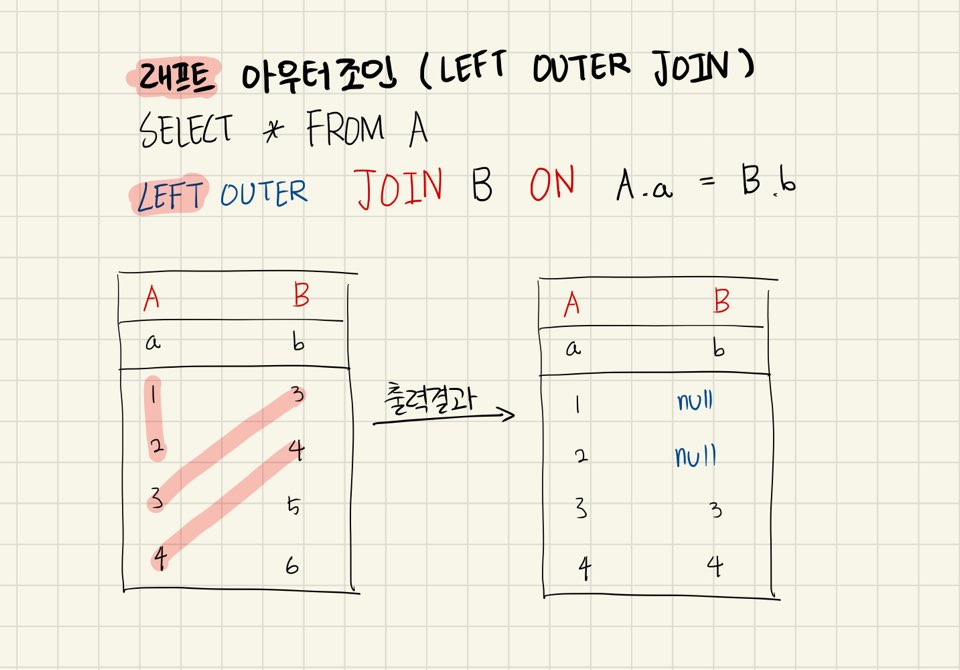 래프트 아우터조인 (LEFT OUTER JOIN)
SELECT * FROM A
LEFT OUTER JOIN B ON A.a = B.b
A B
a b
1 3
2 4
3 5
4 6
출력결과
A B
a b
1 null
2 null
3 3
4 4